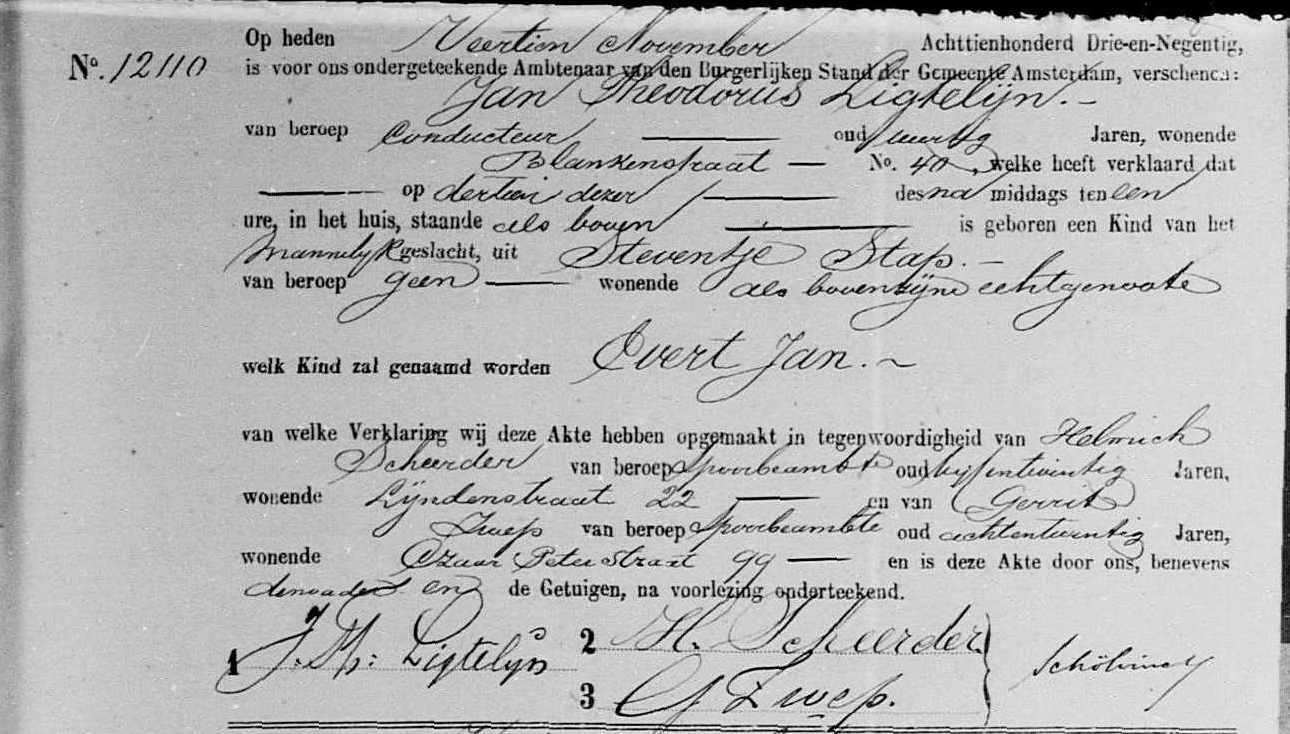 Op heden Veertien November Achttienhonderd Drie-en-Negentig,
No. 12110 is voor ons ondergeteekende Ambtenaar van den Burgerlijken Stand der Gemeente Amsterdam, verschenen:
Jan Theodorus Ligtelijn. –
van beroep Conducteur — oud veertig Jaren, wonende
Blankenstraat — No. 40, welke heeft verklaard dat
— op dertien dezer / — des na middags ten een
ure, in het huis, staande als boven — is geboren een Kind van het
mannelijk geslacht, uit Steventje Stap. –
van beroep geen — wonende als boven zijne echtgenoote
welk Kind zal genaamd worden Evert Jan. ~
van welke Verklaring wij deze Akte hebben opgemaakt in tegenwoordigheid van Helmich
Scheerder van beroep Spoorbeambte oud vijfentwintig Jaren,
wonende Lijndenstraat 22 — en van Gerrit
Zwep van beroep Spoorbeambte oud achtentwintig Jaren,
wonende Czaar Peterstraat 99 — en is deze Akte door ons, benevens
den vader en de Getuigen, na voorlezing onderteekend.
1 J. Th: Ligtelijn 2 H. Scheerder.
3 G Zwep.